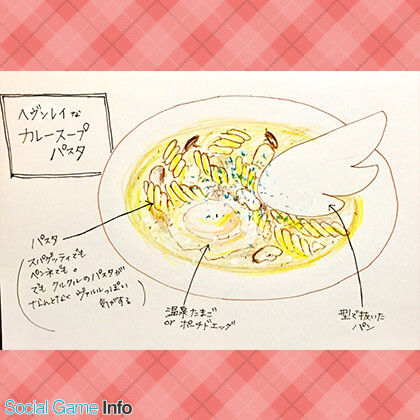 ヘヴンレイな
カレースープ
パスタ
パスタ
スパゲッティでも
ペンネでも。
でもクルクルのパスタが
なんとなくヴァルルっぽい
気がする
温泉たまご
or ポーチドエッグ
型で抜いた
パン
Social Game Info